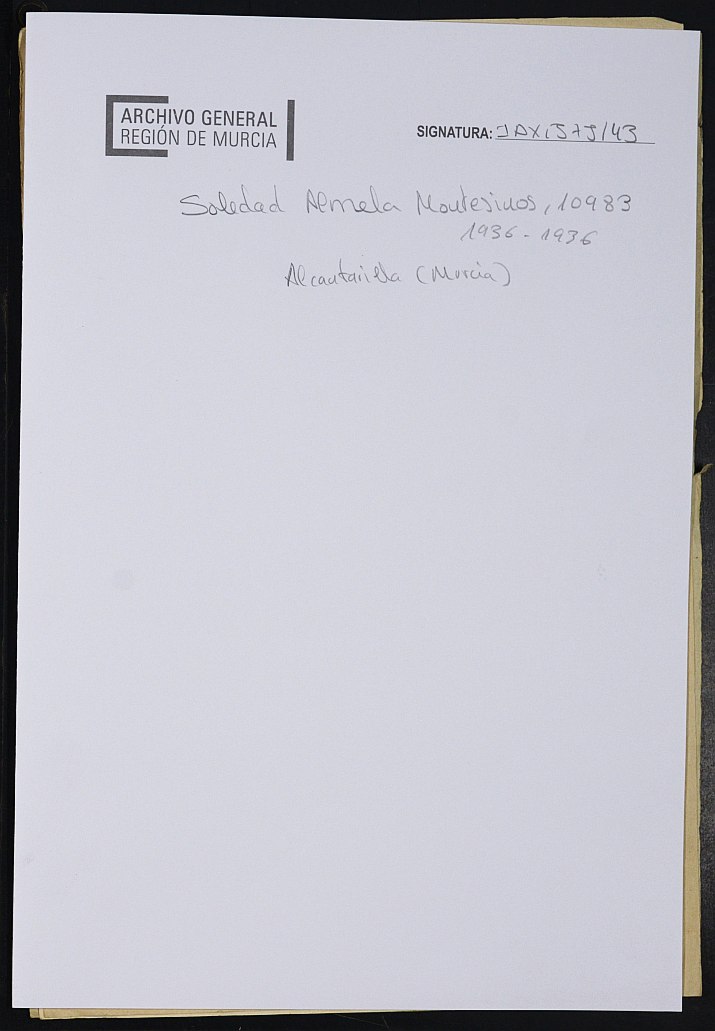 ARCHIVO GENERAL
REGIÓN DE MURCIA
SIGNATURA: JAX,579/43
Soledad Almela Montesinos, 10983
1936 - 1936
Alcantarilla (Murcia)